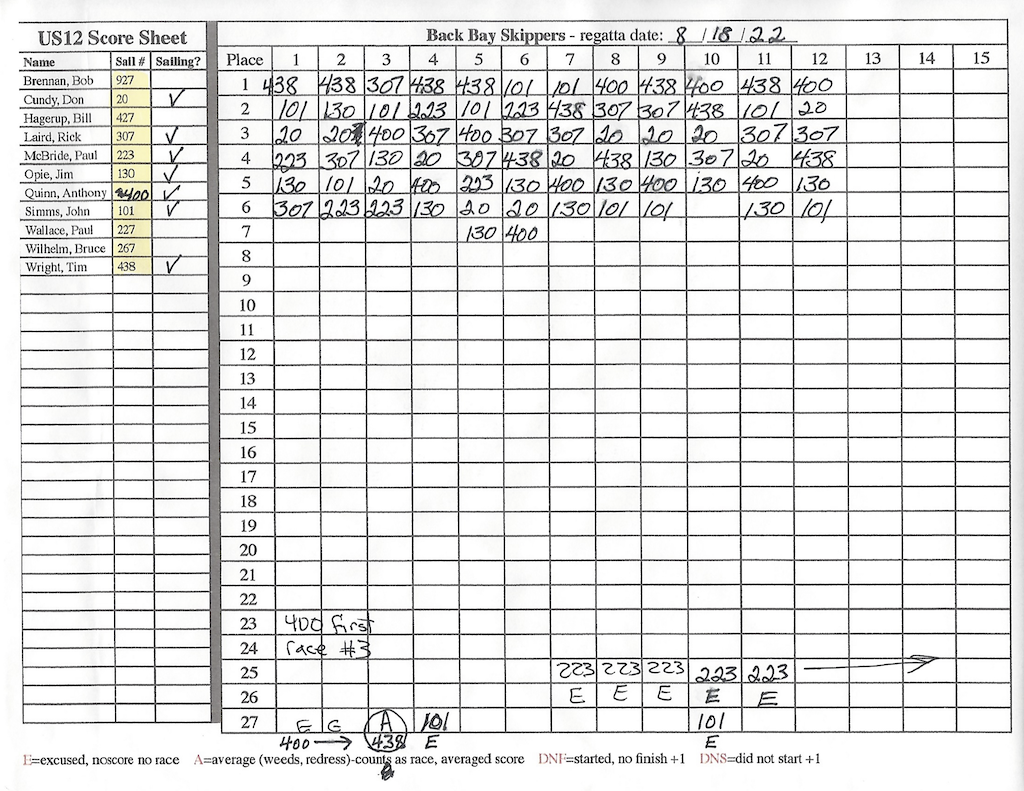 US12 Score Sheet
Back Bay Skippers - regatta date: 8 / 18 / 22
Name Sail # Sailing?
Place 1 2 3 4 5 6 7 8 9 10 11 12 13 14 15
Brennan, Bob 927
Cundy, Don 20 ✓
Hagerup, Bill 427
Laird, Rick 307 ✓
McBride, Paul 223 ✓
Opie, Jim 130 ✓
Quinn, Anthony 400 ✓
Simms, John 101 ✓
Wallace, Paul 227
Wilhelm, Bruce 267
Wright, Tim 438 ✓
1 438 438 307 438 438 101 101 400 438 400 438 400
2 101 130 101 223 101 223 438 307 307 438 101 20
3 20 20 400 307 400 307 307 20 20 20 307 307
4 223 307 130 20 307 438 20 438 130 307 20 438
5 130 101 20 400 223 130 400 130 400 130 400 130
6 307 223 223 130 20 20 130 101 101 130 101
7 130 400
8
9
10
11
12
13
14
15
16
17
18
19
20
21
22
23 400 first
24 race #3
25 223 223 223 223 223
26 E E E E E
27 E E A 101 101
400 → 438 E E
E=excused, noscore no race A=average (weeds, redress)-counts as race, averaged score DNF=started, no finish +1 DNS=did not start +1